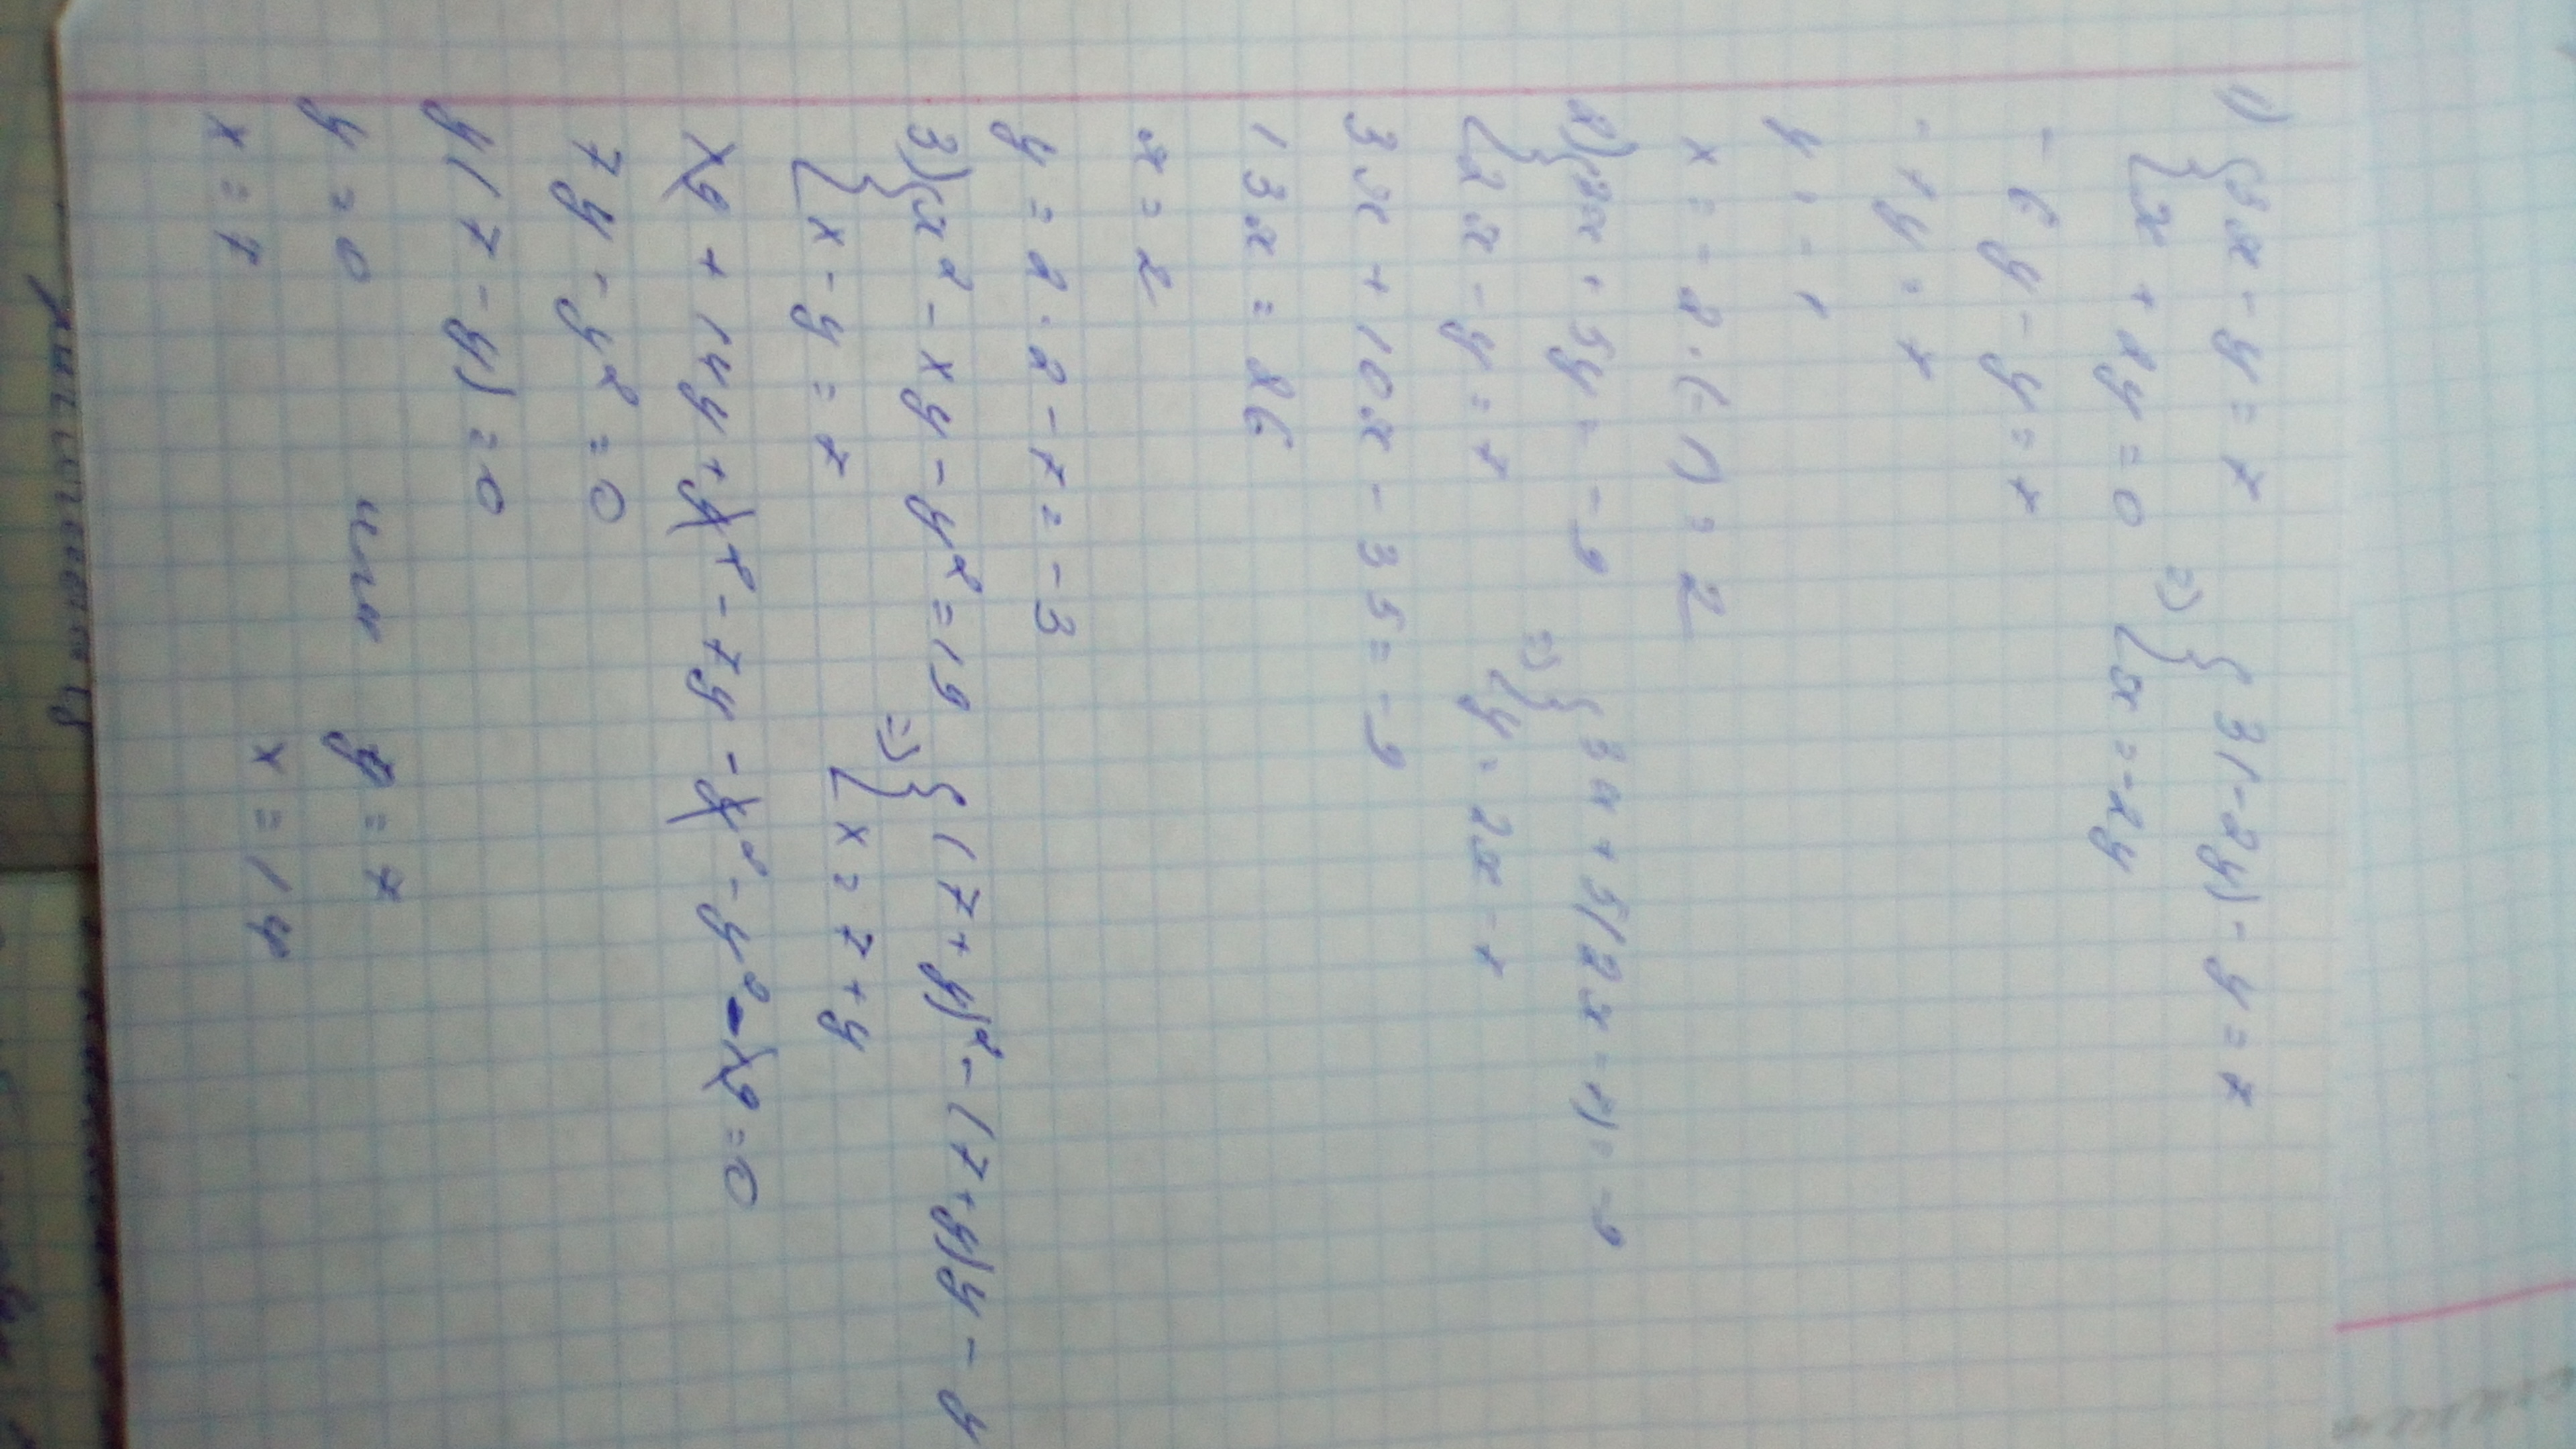 1) { 3x - y = 7 => { 3(-2y) - y = 7
{ x + 2y = 0 { x = -2y
- 6y - y = 7
- 7y = 7
y = - 1
x = - 2 · (- 1) = 2
2) { 3x + 5y = - 9 => { 3x + 5(2x - 7) = - 9
{ 2x - y = 7 { y = 2x - 7
3x + 10x - 35 = - 9
13x = 26
x = 2
y = 2 · 2 - 7 = - 3
3) { x² - xy - y² = 19 => { (7 + y)² - (7 + y)y - y
{ x - y = 7 { x = 7 + y
49 + 14y + y² - 7y - y² - y² - 49 = 0
7y - y² = 0
y(7 - y) = 0
y = 0 или y = 7
x = 7 x = 14